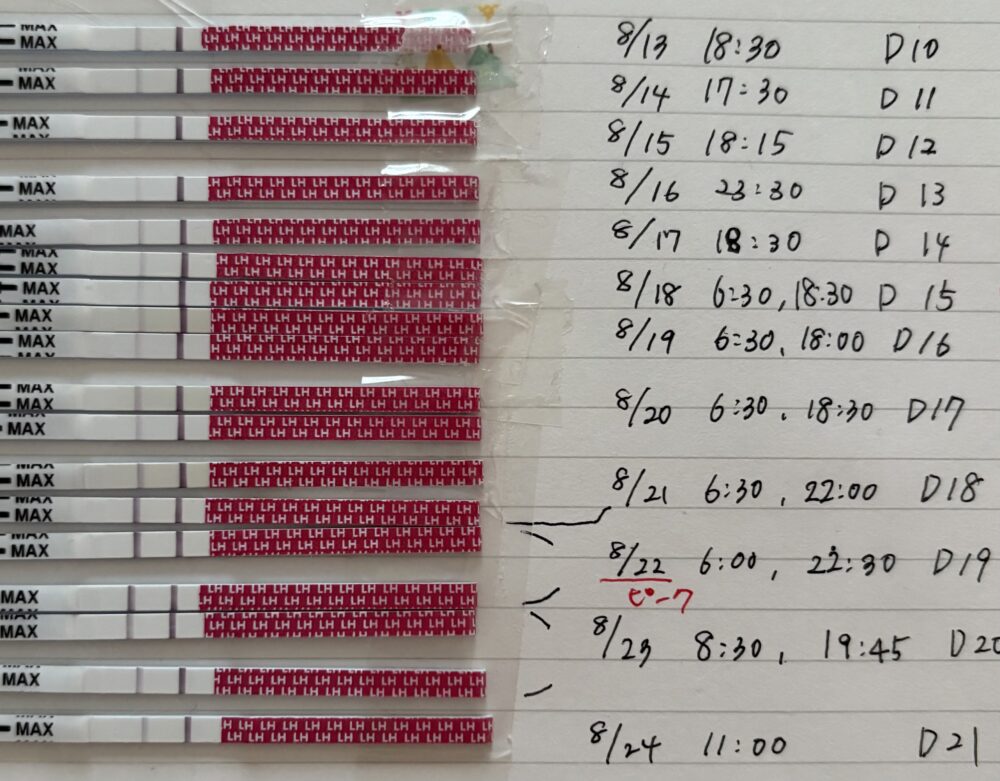 MAX
MAX 8/13 18:30 D10
MAX 8/14 17:30 D11
MAX 8/15 18:15 D12
MAX 8/16 23:30 D13
MAX 8/17 18:30 D 14
MAX
MAX 8/18 6:30, 18:30 D 15
MAX
MAX 8/19 6:30, 18:00 D16
MAX
MAX 8/20 6:30, 18:30 D17
MAX
MAX
MAX 8/21 6:30, 22:00 D18
MAX
MAX
MAX 8/22 6:00, 22:30 D19
MAX ピーク
MAX
MAX 8/23 8:30, 19:45 D20
MAX
MAX 8/24 11:00 D21
LH LH LH LH LH LH LH LH LH LH LH